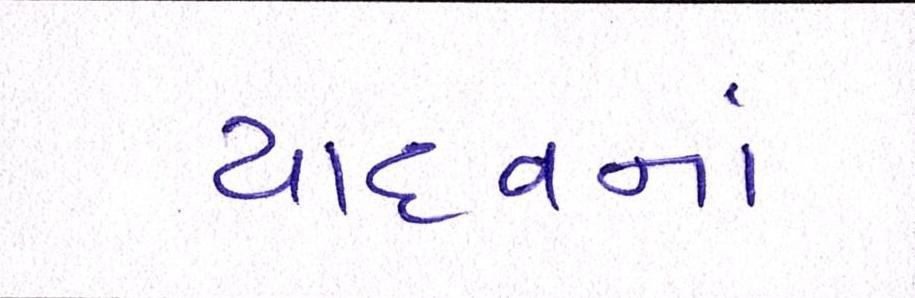 યાદવનાં